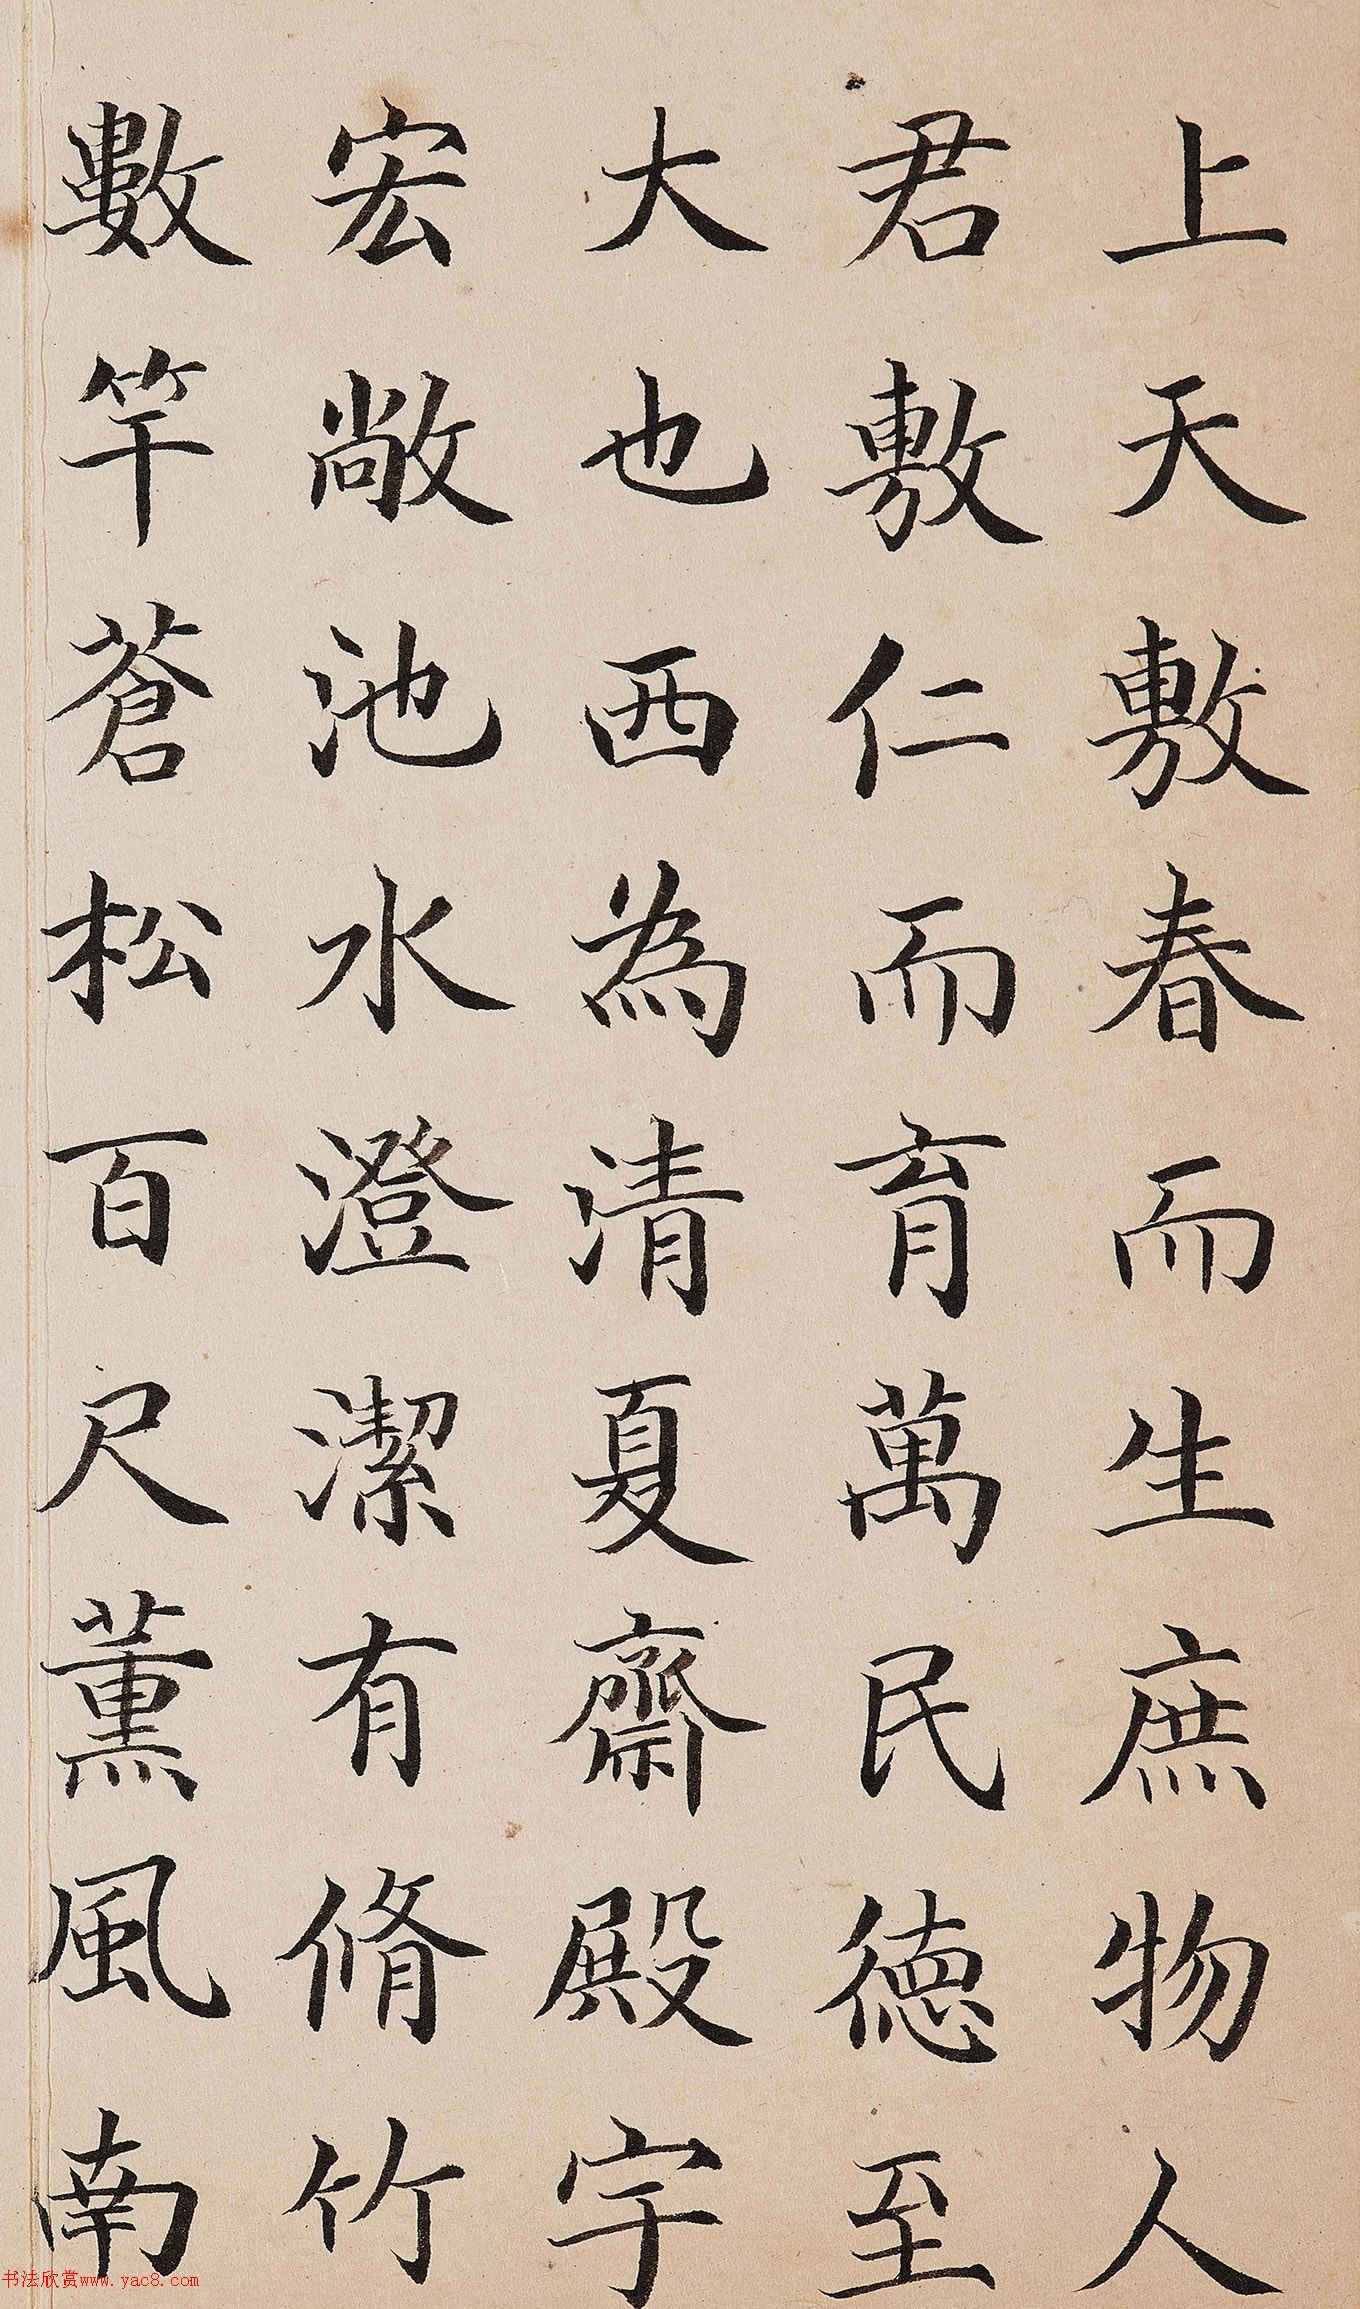 上天敷春而生庶物人
君敷仁而育萬民德至
大也西為清夏齋殿宇
宏敞池水澄潔有脩竹
數竿蒼松百尺薰風南
书法欣赏www.yac8.com